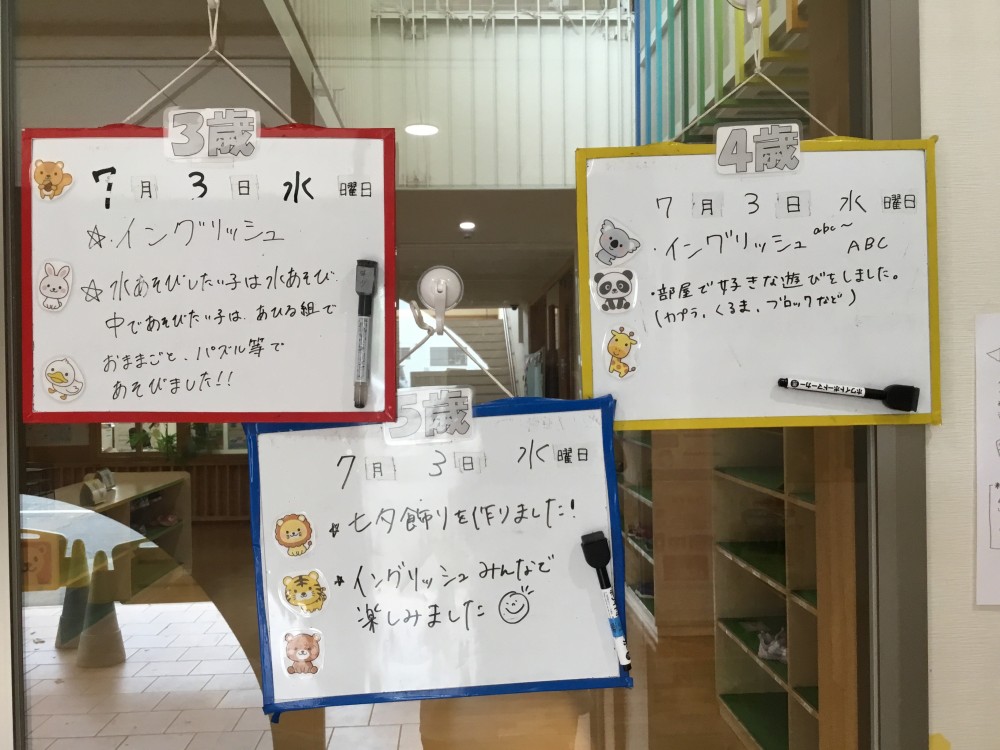 3歳
7月3日水曜日
☆・イングリッシュ
☆水あそびしたい子は水あそび.
中であそびたい子は、あひる組で
おままごと、パズル等で
あそびました!!
4歳
7月3日水曜日
・イングリッシュ abc~ ABC
・部屋で好きな遊びをしました。
(カプラ、くるま、ブロックなど)
ホワイトボードマーカー
5歳
7月3日水曜日
☆七夕飾りを作りました!
☆イングリッシュみんなで
楽しみました